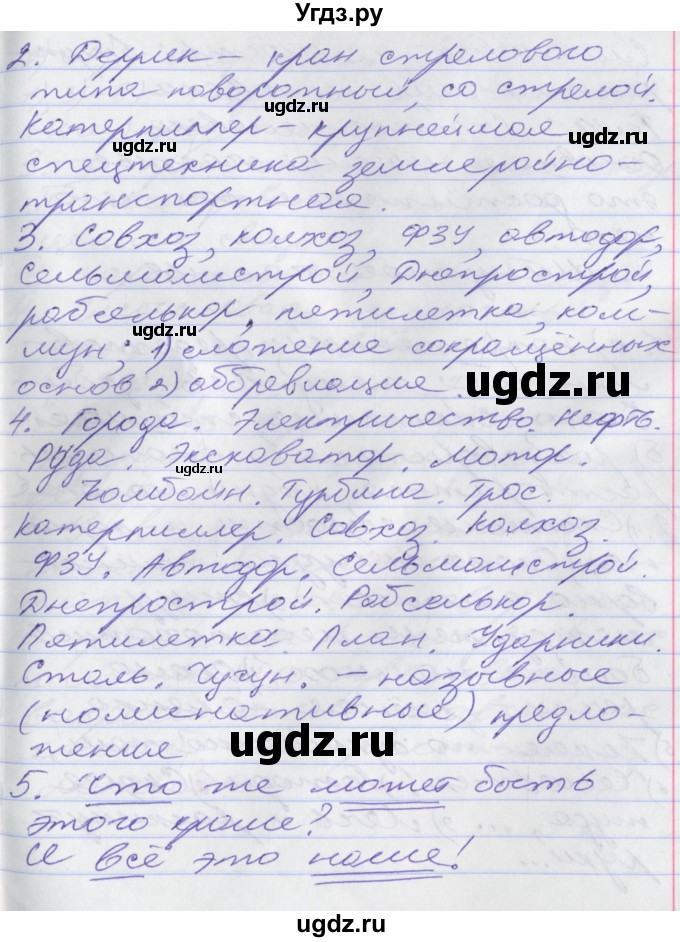 Угдз.ру
2. Деррик – кран стрелового
типа поворотный, со стрелой.
Катерпиллер – крупнейшая
спецтехника землеройно-
транспортная.
3. Совхоз, колхоз, ФЗУ, автодор,
Сельмашстрой, Днепрострой,
рабселькор, пятилетка, ком-
мун; 1) сложение сокращённых
основ 2) аббревиация.
4. Города. Электричество. Нефть.
Руда. Экскаватор. Мотор.
Комбайн. Турбина. Трос.
Катерпиллер. Совхоз. Колхоз.
ФЗУ. Автодор. Сельмашстрой.
Днепрострой. Рабселькор.
Пятилетка. План. Ударники.
Сталь. Чугун. – назывные
(номинативные) предло-
жения
5. Что же может быть
этого краше?
И всё это наше!
ugdz.ru
ugdz.ru
ugdz.ru
ugdz.ru
ugdz.ru
ugdz.ru
ugdz.ru
ugdz.ru
ugdz.ru